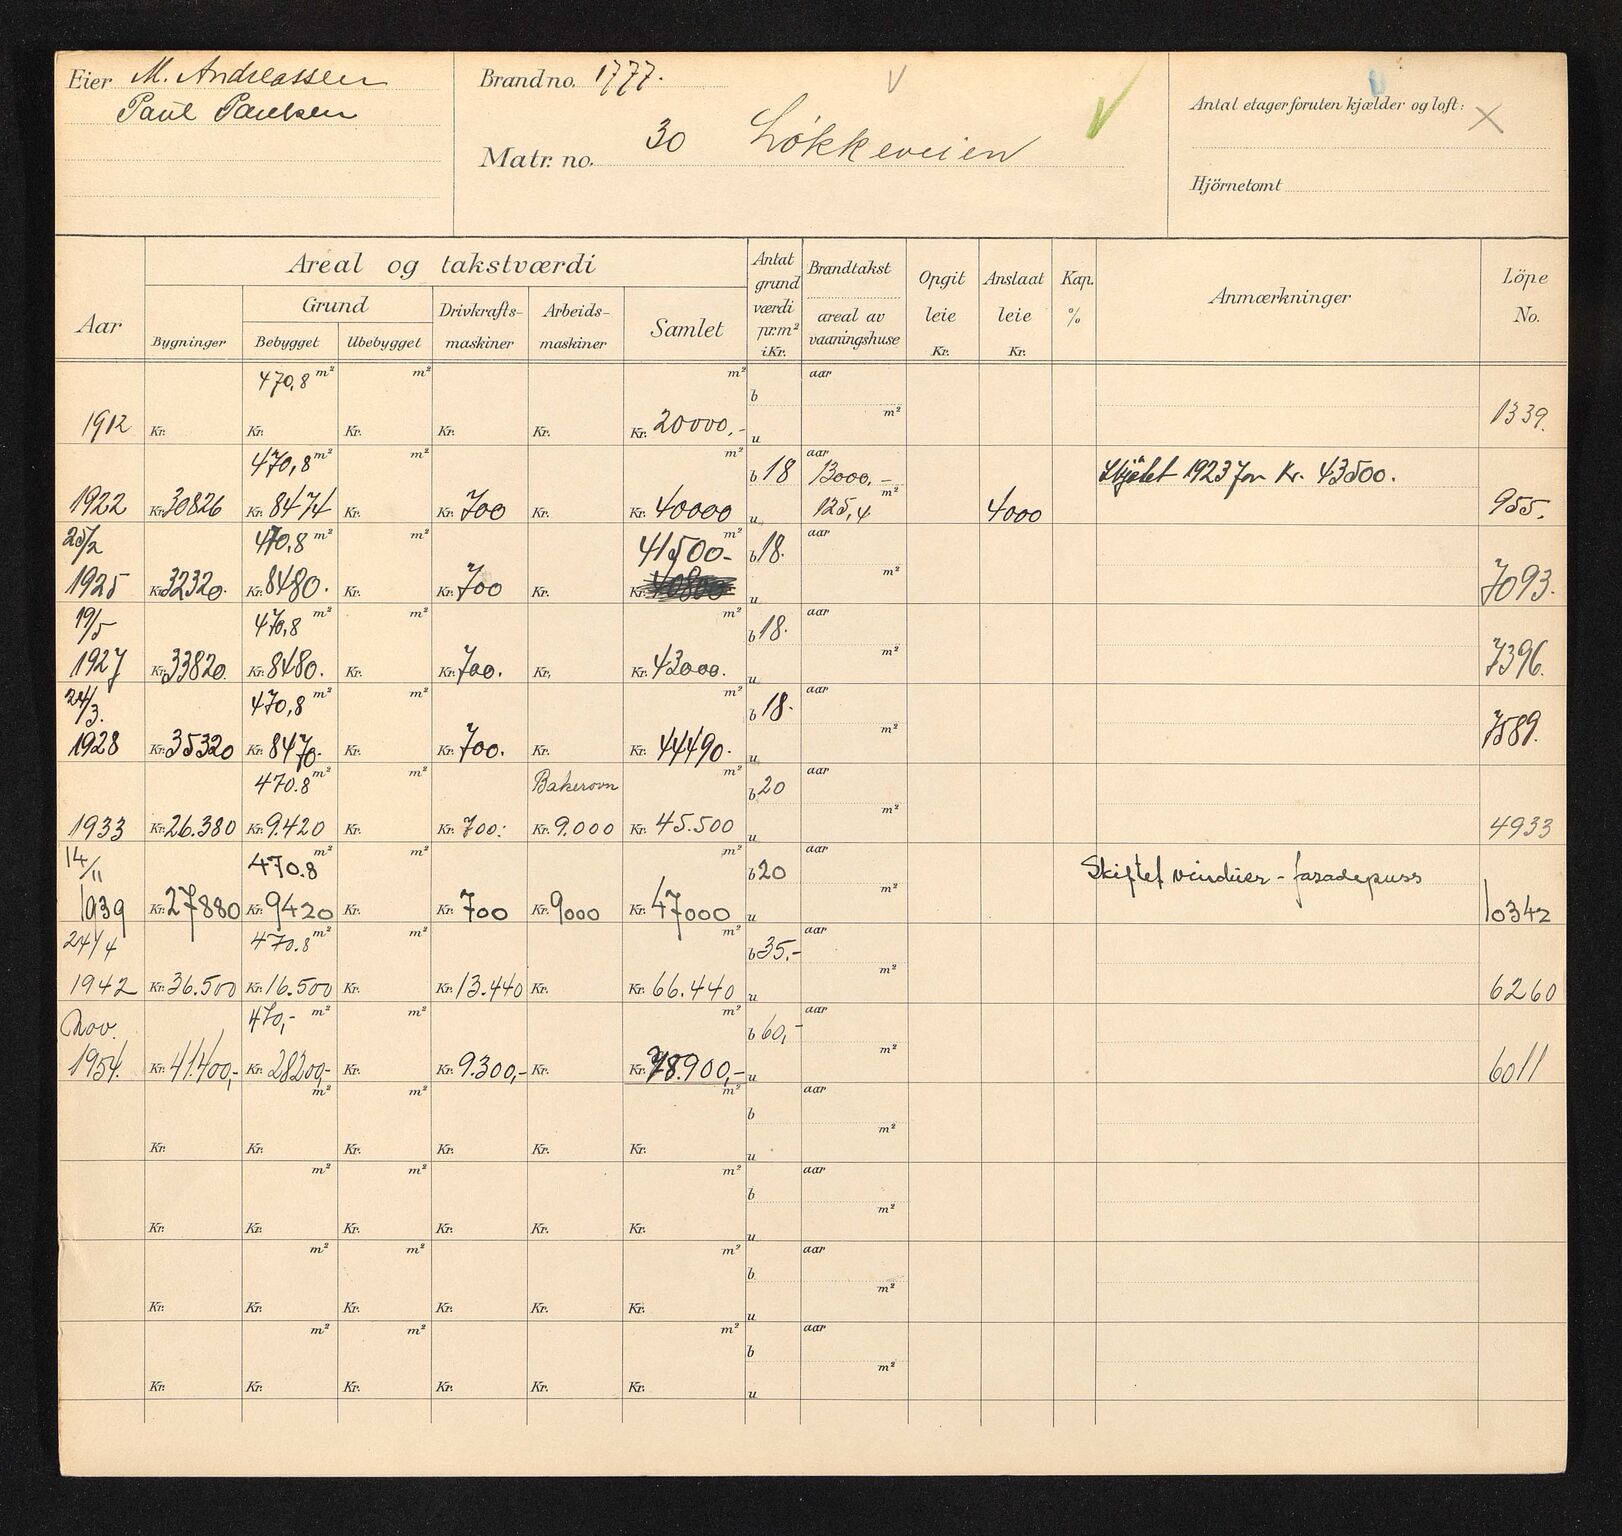 Eier M. Andreassen
Paul Paulsen
Brandno. 1777.
Matr. no. 30 Løkkeveien
Antal etager foruten kjælder og loft:
Hjörnetomt
Areal og takstværdi
Grund
Aar
Bygninger
Bebygget
Ubebygget
Drivkrafts-
maskiner
Arbeids-
maskiner
Samlet
Antat
grund
værdi
pr. m²
i Kr.
Brandtakst
areal av
vaaningshuse
Opgit
leie
Kr.
Anslaat
leie
Kr.
Kap.
%
Anmærkninger
Löpe
No.
470,8 m² m² m² aar
b
m²
1912 Kr. Kr. Kr. Kr. Kr. Kr. 20000,- u 1339.
470,8 m² m² m² b 18 aar 13000,- Skjøtet 1923 for Kr. 43500.
1922 Kr. 30826 Kr. 8474 Kr. Kr. 700 Kr. Kr. 40000 u 125,4 m² 4000 955.
25/2 470,8 m² m² 41500- m² b 18. aar
m²
1925 Kr. 32320. Kr. 8480. Kr. Kr. 700 Kr. Kr. u 7093.
19/5 470,8 m² m² m² b 18. aar
m²
1927 Kr. 33820. Kr. 8480. Kr. Kr. 700. Kr. Kr. 43000. u 7396.
24/3. 470,8 m² m² m² b 18. aar
m²
1928 Kr. 35320 Kr. 8470. Kr. Kr. 700. Kr. Kr. 44490. u 7589.
470.8 m² m² Bakerovn m² b 20 aar
m²
1933 Kr. 26.380 Kr. 9.420 Kr. Kr. 700: Kr. 9.000 Kr. 45.500 u 4933
14/11 470.8 m² m² m² b 20 aar Skiftet vinduer - fasadepuss
m²
1939 Kr. 27880 Kr. 9420 Kr. Kr. 700 Kr. 9000 Kr. 47000 u 10342
24/4 470.8 m² m² m² b 35,- aar
m²
1942 Kr. 36.500 Kr. 16.500 Kr. Kr. 13.440 Kr. Kr. 66.440 u 6260
Nov. 470,- m² m² m² b 60,- aar
m²
1954. Kr. 41.400,- Kr. 28200,- Kr. Kr. 9.300,- Kr. Kr. 78.900,- u 6011
m² m² m² aar
b
m²
Kr. Kr. Kr. Kr. Kr. Kr. u
m² m² m² aar
b
m²
Kr. Kr. Kr. Kr. Kr. Kr. u
m² m² m² aar
b
m²
Kr. Kr. Kr. Kr. Kr. Kr. u
m² m² m² aar
b
m²
Kr. Kr. Kr. Kr. Kr. Kr. u